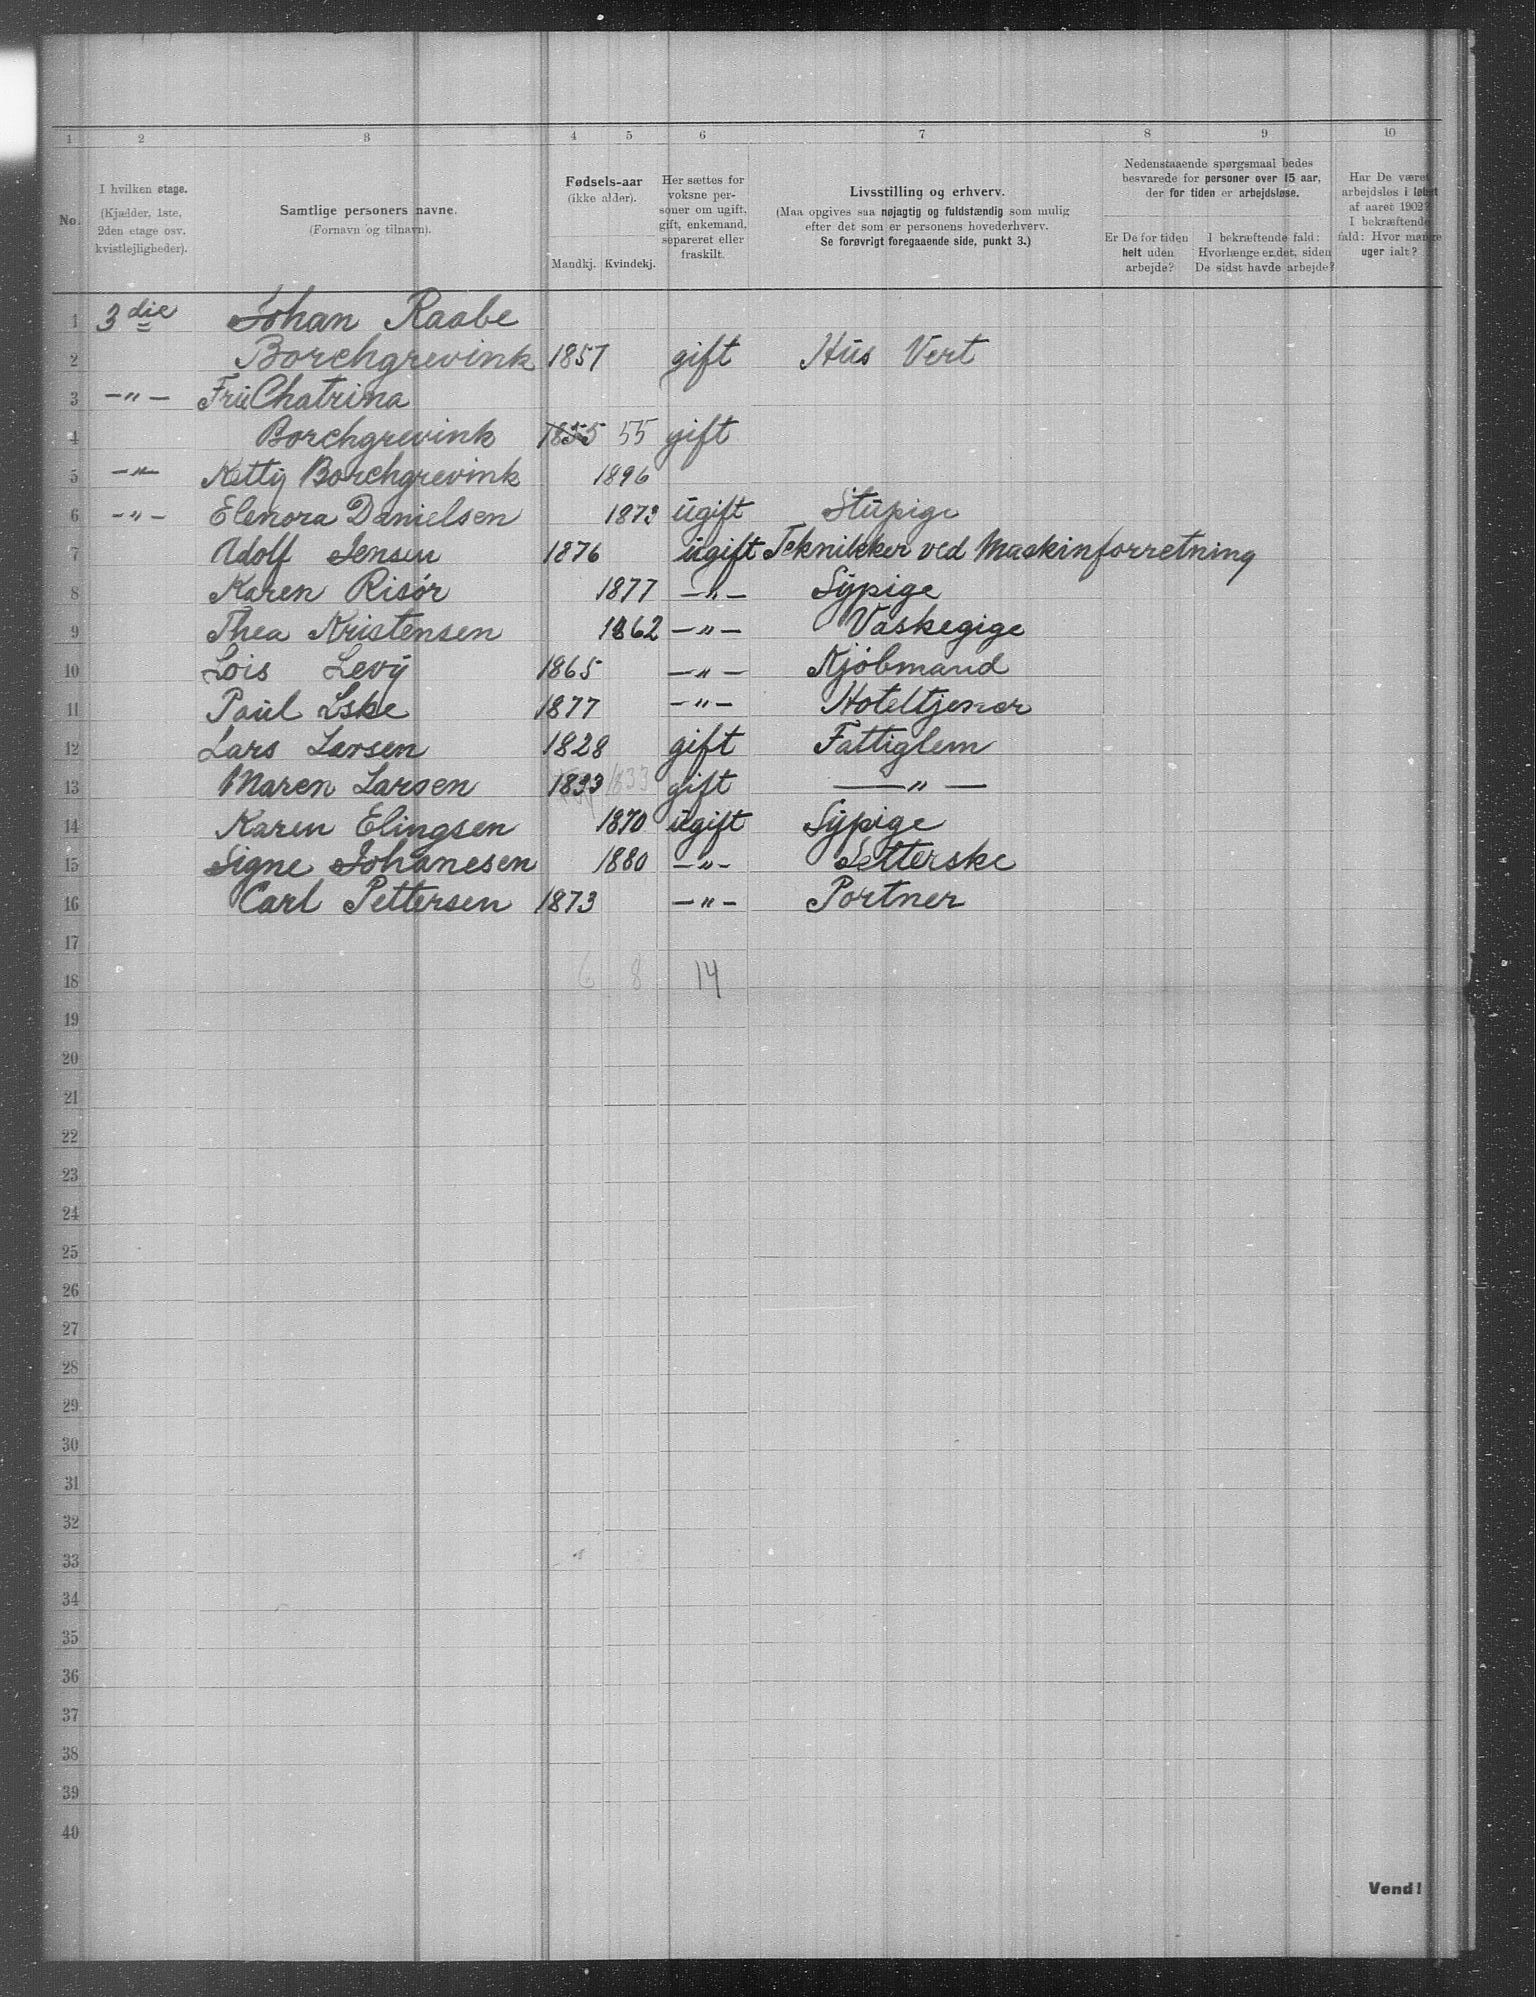 1 2 3 4 5 6 7 8 9 10
No.
I hvilken etage.
(Kjælder, 1ste,
2den etage osv.
kvistlejligheder).
Samtlige personers navne.
(Fornavn og tilnavn).
Fødsels-aar
(ikke alder).
Mandkj. Kvindekj.
Her sættes for
voksne per-
soner om ugift,
gift, enkemand,
separeret eller
fraskilt.
Livsstilling og erhverv.
(Maa opgives saa nøjagtig og fuldstændig som mulig
efter det som er personens hovederhverv.
Se forøvrigt foregaaende side, punkt 3.)
Nedenstaaende spørgsmaal bedes
besvarede for personer over 15 aar,
der for tiden er arbejdsløse.
Er De for tiden
helt uden
arbejde?
I bekræftende fald:
Hvorlænge er det, siden
De sidst havde arbejde?
Har De været
arbejdsløs i løbet
af aaret 1902?
I bekræftende
fald: Hvor mange
uger ialt?
1 3die Johan Raabe
2 Borchgrevink 1857 gift Hus Vert
3 —"— Frü Chatrina
4 Borchgrevink 1855 55 gift
5 —"— Ketty Borchgrevink 1896
6 —"— Elenora Danielsen 1873 ügift Stüpige
7 Adolf Jensen 1876 ügift Teknikker ved Maskinforretning
8 Karen Risör 1877 —"— Sÿpige
9 Thea Kristensen 1862 —"— Vaskegige
10 Lois Levÿ 1865 —"— Kjöbmand
11 Paul Eske 1877 —"— Hoteltjener
12 Lars Larsen 1828 gift Fattiglem
13 Maren Larsen 1833 1833 gift —"—
14 Karen Elingsen 1870 ügift Sÿpige
15 Signe Johanesen 1880 —"— Setterske
16 Carl Pettersen 1873 —"— Portner
17
18 6 8 14
19
20
21
22
23
24
25
26
27
28
29
30
31
32
33
34
35
36
37
38
39
40
Vend!